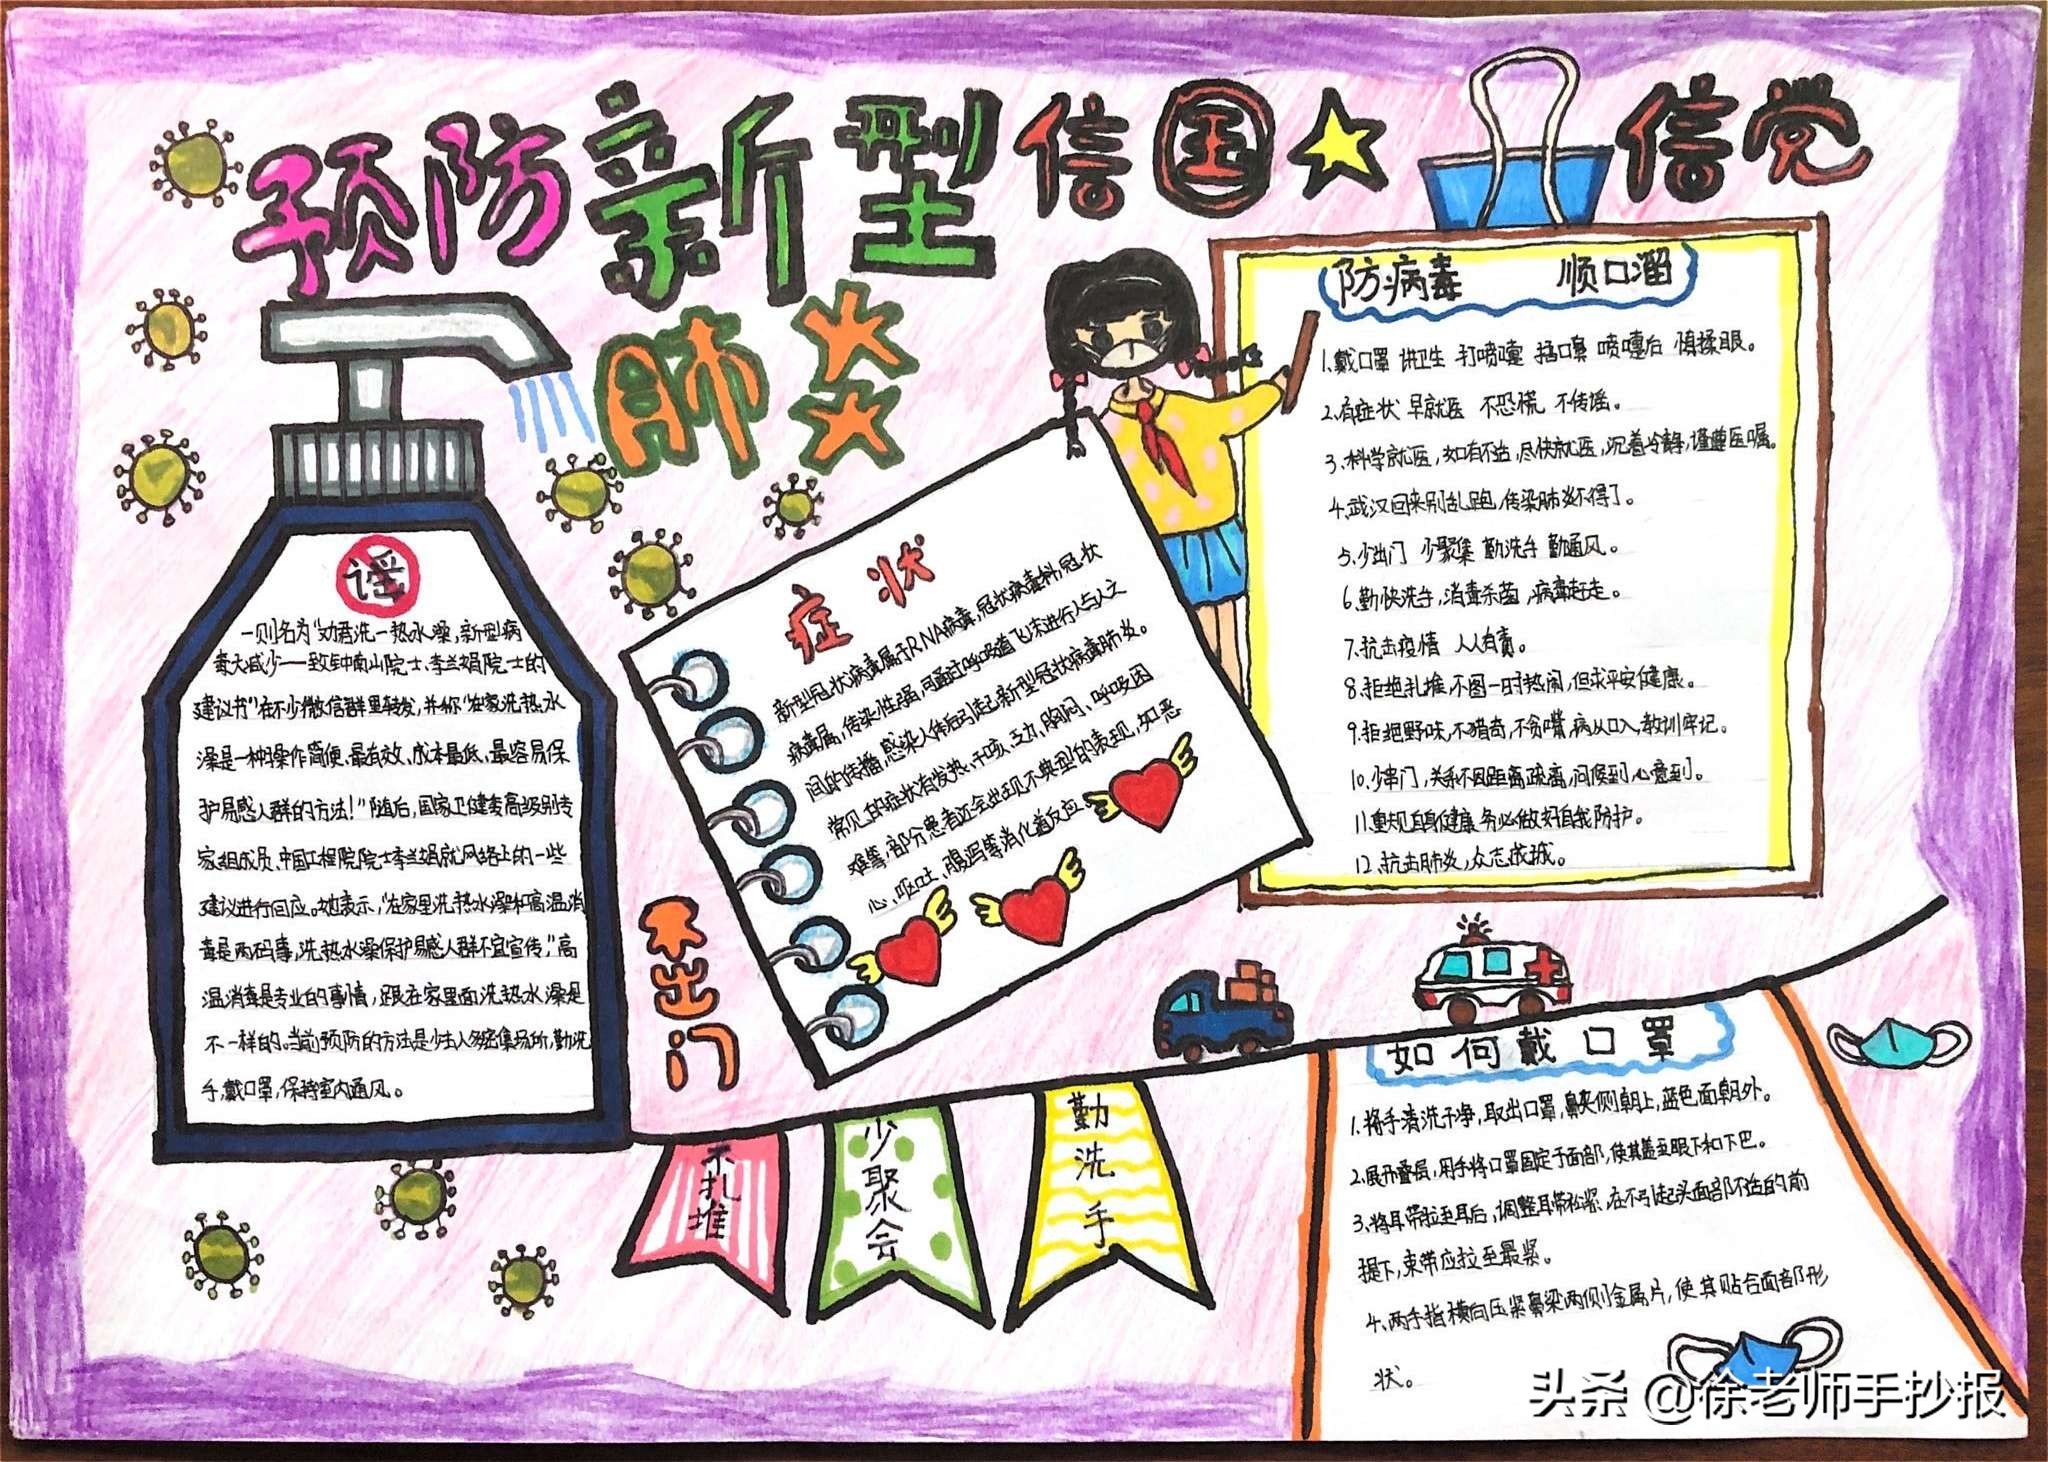 预防新型
肺炎
信国
信党
谣
一则名为“劝君洗一热水澡,新型病
毒大减少——致钟南山院士、李兰娟院士的
建议书”在不少微信群里转发,并称“在家洗热水
澡是一种操作简便、最有效、成本最低、最容易保
护易感人群的方法!”随后,国家卫健委高级别专
家组成员、中国工程院院士李兰娟就网络上的一些
建议进行回应。她表示,“在家里洗热水澡和高温消
毒是两码事,洗热水澡保护易感人群不宜宣传,“高
温消毒是专业的事情,跟在家里面洗热水澡是
不一样的。当前预防的方法是少去人多密集场所,勤洗
手,戴口罩,保持室内通风。
症状
新型冠状病毒属于RNA病毒,冠状病毒科,冠状
病毒属,传染性强,可通过呼吸道飞沫进行人与人之
间的传播,感染人体后引起新型冠状病毒肺炎。
常见的症状有发热、干咳、乏力、胸闷、呼吸困
难等,部分患者还会出现不典型的表现,如恶
心、呕吐、腹泻等消化道反应。
防病毒 顺口溜
1.戴口罩 讲卫生 打喷嚏 捂口鼻 喷嚏后 慎揉眼。
2.有症状 早就医 不恐慌 不传谣。
3.科学就医,如有不适,尽快就医,沉着冷静,谨遵医嘱。
4.武汉回来别乱跑,传染肺炎不得了。
5.少出门 少聚集 勤洗手 勤通风。
6.勤快洗手,消毒杀菌,病毒赶走。
7.抗击疫情 人人有责。
8.拒绝扎堆,不图一时热闹,但求平安健康。
9.拒绝野味,不猎奇,不贪嘴,病从口入,教训牢记。
10.少串门,关系不因距离疏离,问候到,心意到。
11.重视自身健康,务必做好自我防护。
12.抗击肺炎,众志成城。
不出门
不扎堆
少聚会
勤洗手
如何戴口罩
1.将手清洗干净,取出口罩,鼻夹侧朝上,蓝色面朝外。
2.展开叠层,用手将口罩固定于面部,使其盖至眼下和下巴。
3.将耳带拉至耳后,调整耳带松紧,在不引起头面部不适的前
提下,束带应拉至最紧。
4.两手指横向压紧鼻梁两侧金属片,使其贴合面部形
状。
头条 @徐老师手抄报